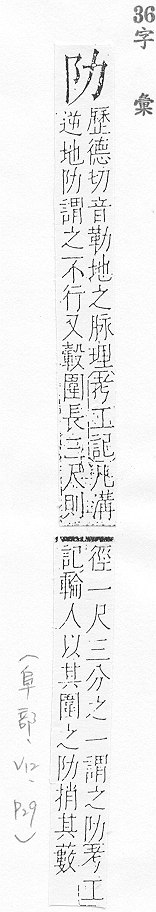 36
字彙
阞
歷德切音勒地之脉理考工記凡溝
逆地阞謂之不行又轂圍長三尺則
徑一尺三分之一謂之阞考工
記輪人以其圍之阞捎其藪
(阜部、V12、P29)